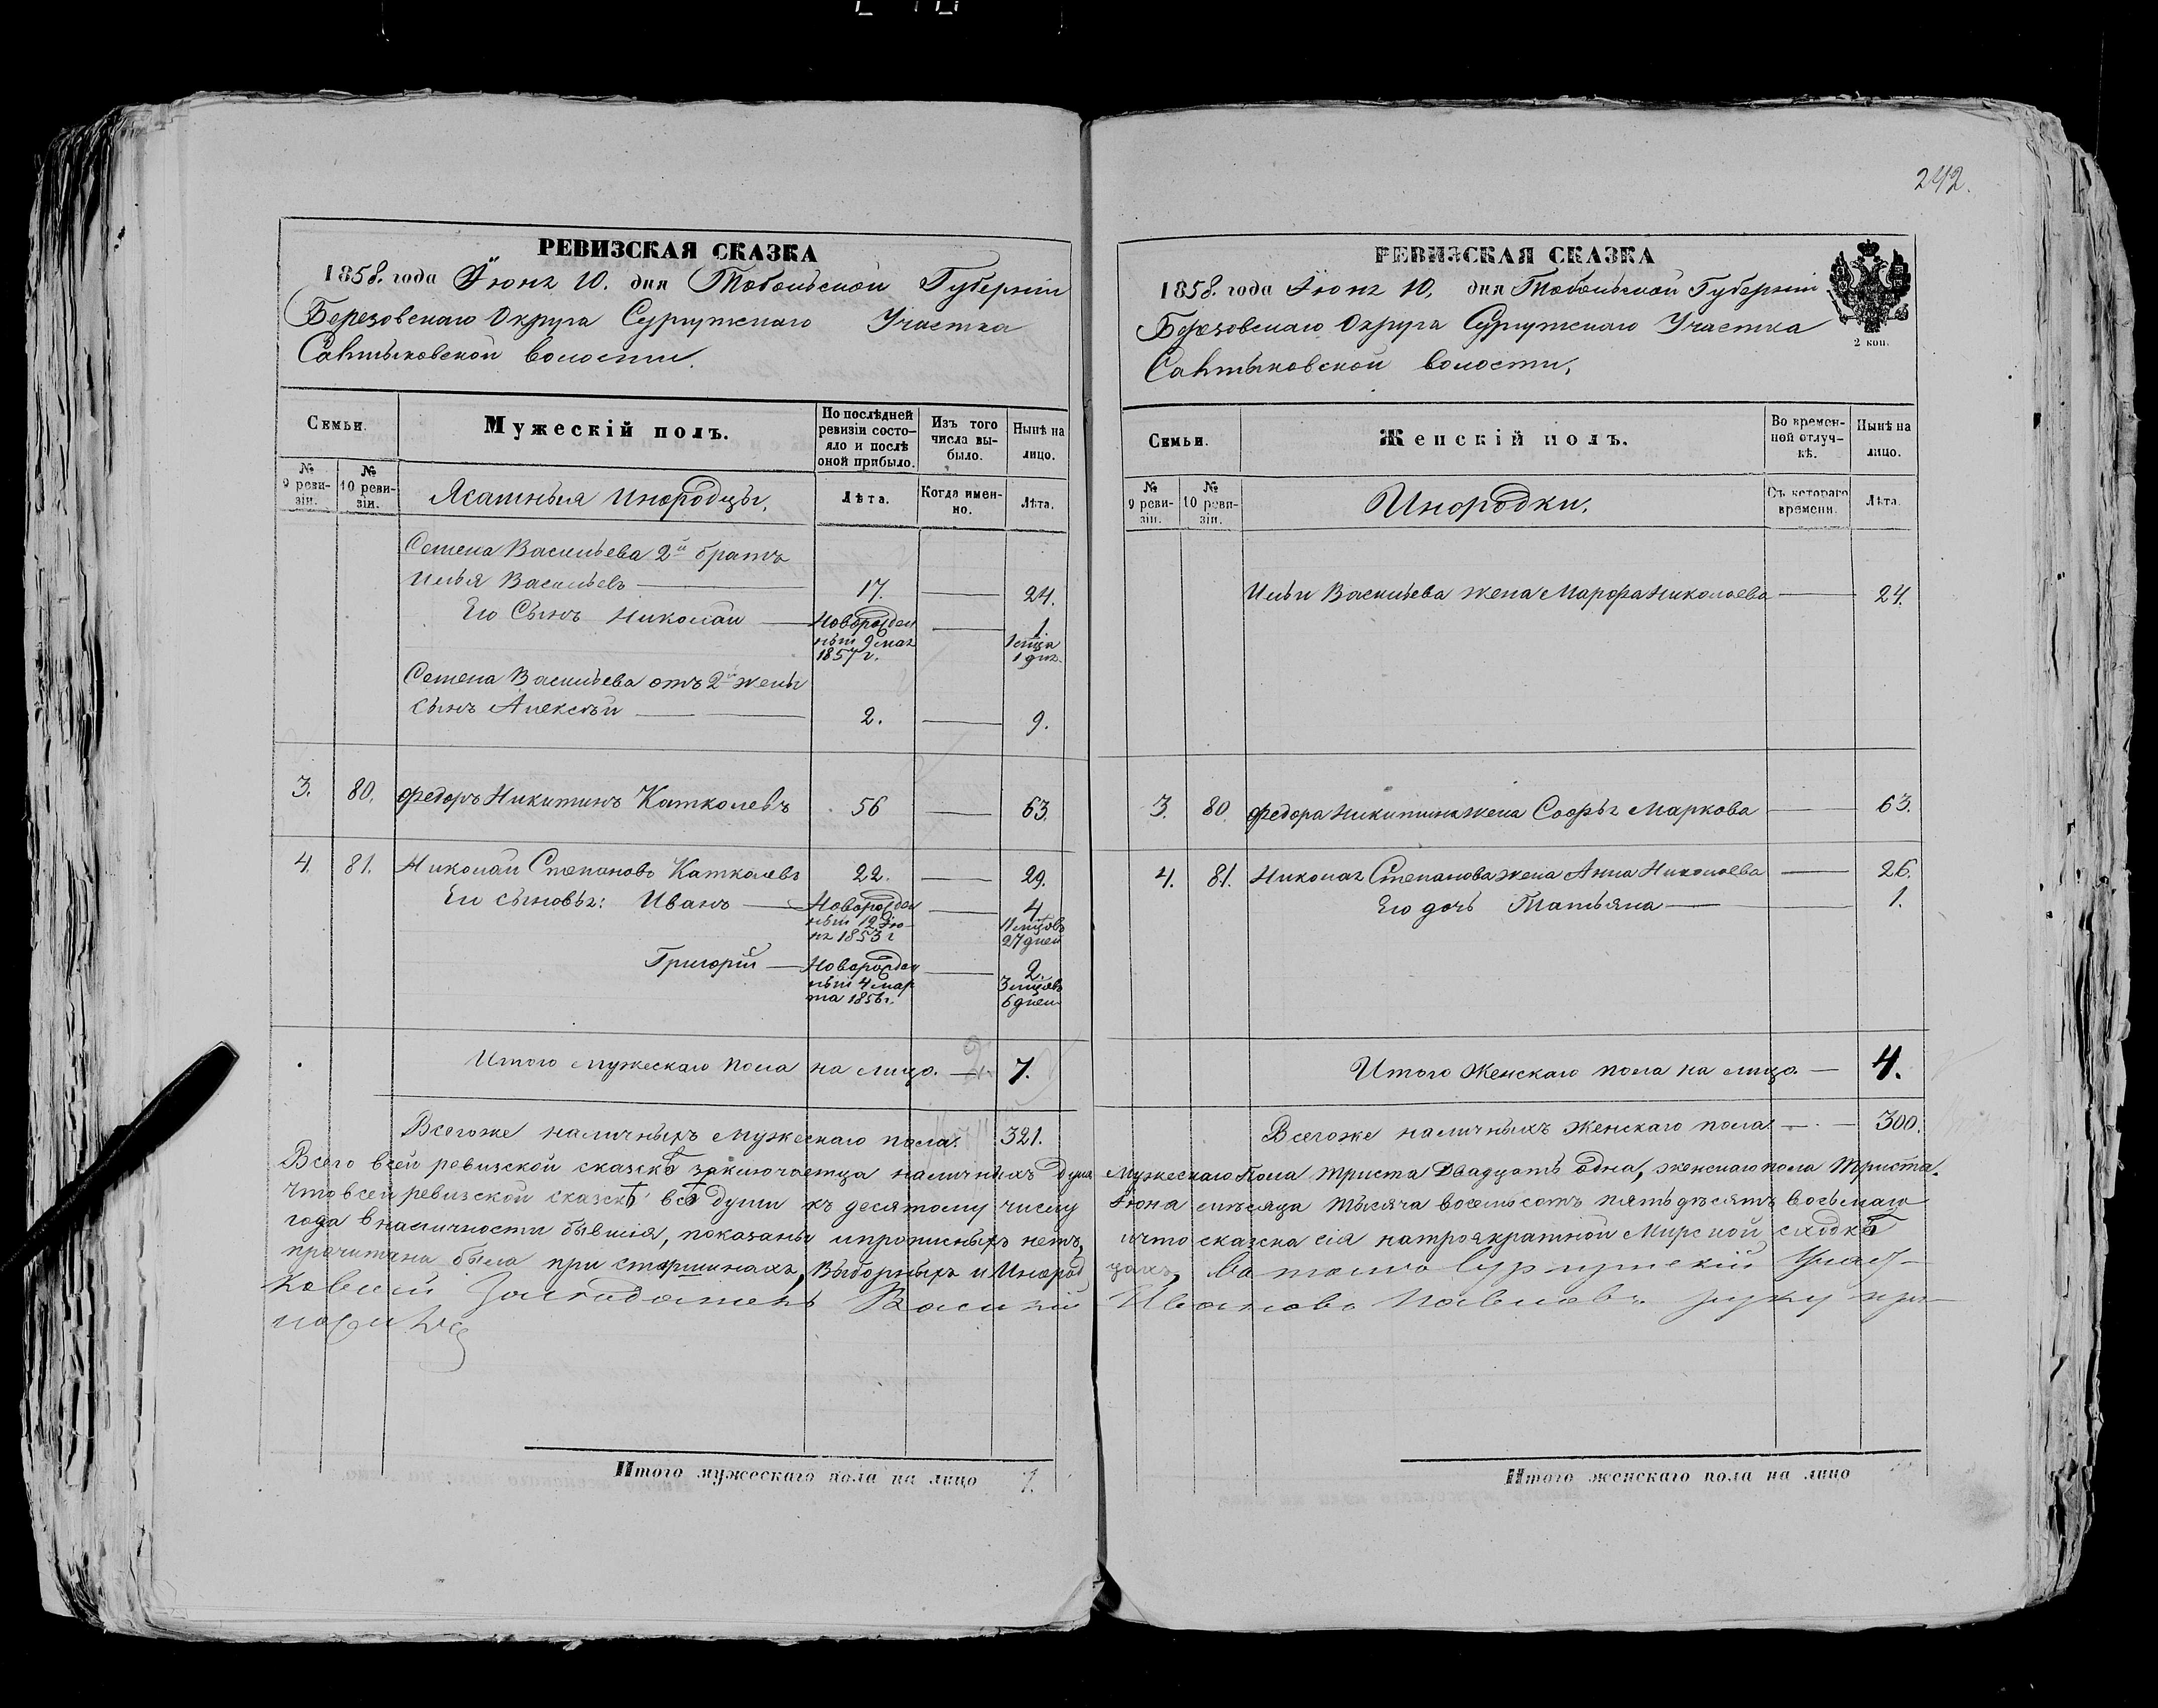 242.
РЕВИЗСКАЯ СКАЗКА
1858. года Іюня 10. дня Тобольской Губерніи
Березовскаго Округа Сургутскаго Участка
Салтыковской волости.
Семьи.
Мужескій полъ.
По послѣдней ревизіи состо-
яло и послѣ оной прибыло.
Изъ того числа вы-
было.
Нынѣ на лицо.
№ 9 реви-
зіи.
№ 10 реви-
зіи.
Ясашныя Инородцы.
Лѣта.
Когда имен-
но.
Лѣта.
Семена Васильева 2й братъ
Илья Васильевъ — 17. — 24.
Его Сынъ Николай — Новорожден — 1.
ный 9 мая 1 мѣца
1857 г. 1 дня.
Семена Васильева отъ 2й жены
сынъ Алексѣй — 2. — 9.
3. 80. Федоръ Никитинъ Каткалевъ 56 — 63.
4. 81. Николай Степановъ Каткалевъ 22. — 29.
Его сыновья: Иванъ — Новорожден — 4.
ный 12 Ію- 11 мѣцовъ
ня 1853 г 27 дней
Григорій — Новорожден — 2.
ный 4 мар 3 мѣцовъ
та 1856 г. 6 дней
Итого мужескаго пола на лицо. — 7.
Всегоже наличныхъ мужескаго пола. 321.
РЕВИЗСКАЯ СКАЗКА
1858. года Іюня 10. дня Тобольской Губерніи
Березовскаго Округа Сургутскаго Участка
Салтыковской волости.
2 коп.
Семьи.
Женскій полъ.
Во времен-
ной отлуч-
кѣ.
Нынѣ на лицо.
№ 9 реви-
зіи.
№ 10 реви-
зіи.
Инородки.
Съ котораго времени.
Лѣта.
Ильи Васильева жена Марфа Николаева — 24.
3. 80. Федора Никитина жена Софья Маркова — 63.
4. 81. Николая Степанова жена Анна Николаева — 26.
Его дочь Татьяна — 1.
Итого Женскаго пола на лицо. — 4.
Всегоже наличныхъ Женскаго пола. — 300.
Всего всей ревизской сказкѣ заключаетца наличныхъ душъ Мужескаго Пола триста двадцать одна, женскаго пола триста.
Что всей ревизской сказкѣ всѣ души къ десятому числу Іюня мѣсяца тысяча восемьсотъ пятьдѣсятъ восьмаго
года вналичности бывшія, показаны ипрописныхъ нетъ, ичто сказска сія натроякратной Мирской сходкѣ
прочитана была при старшинахъ, Выборныхъ и Инород цахъ,
Василій Ивановъ Павловъ руку при
Итого мужескаго пола на лицо 7.
Итого женскаго пола на лицо